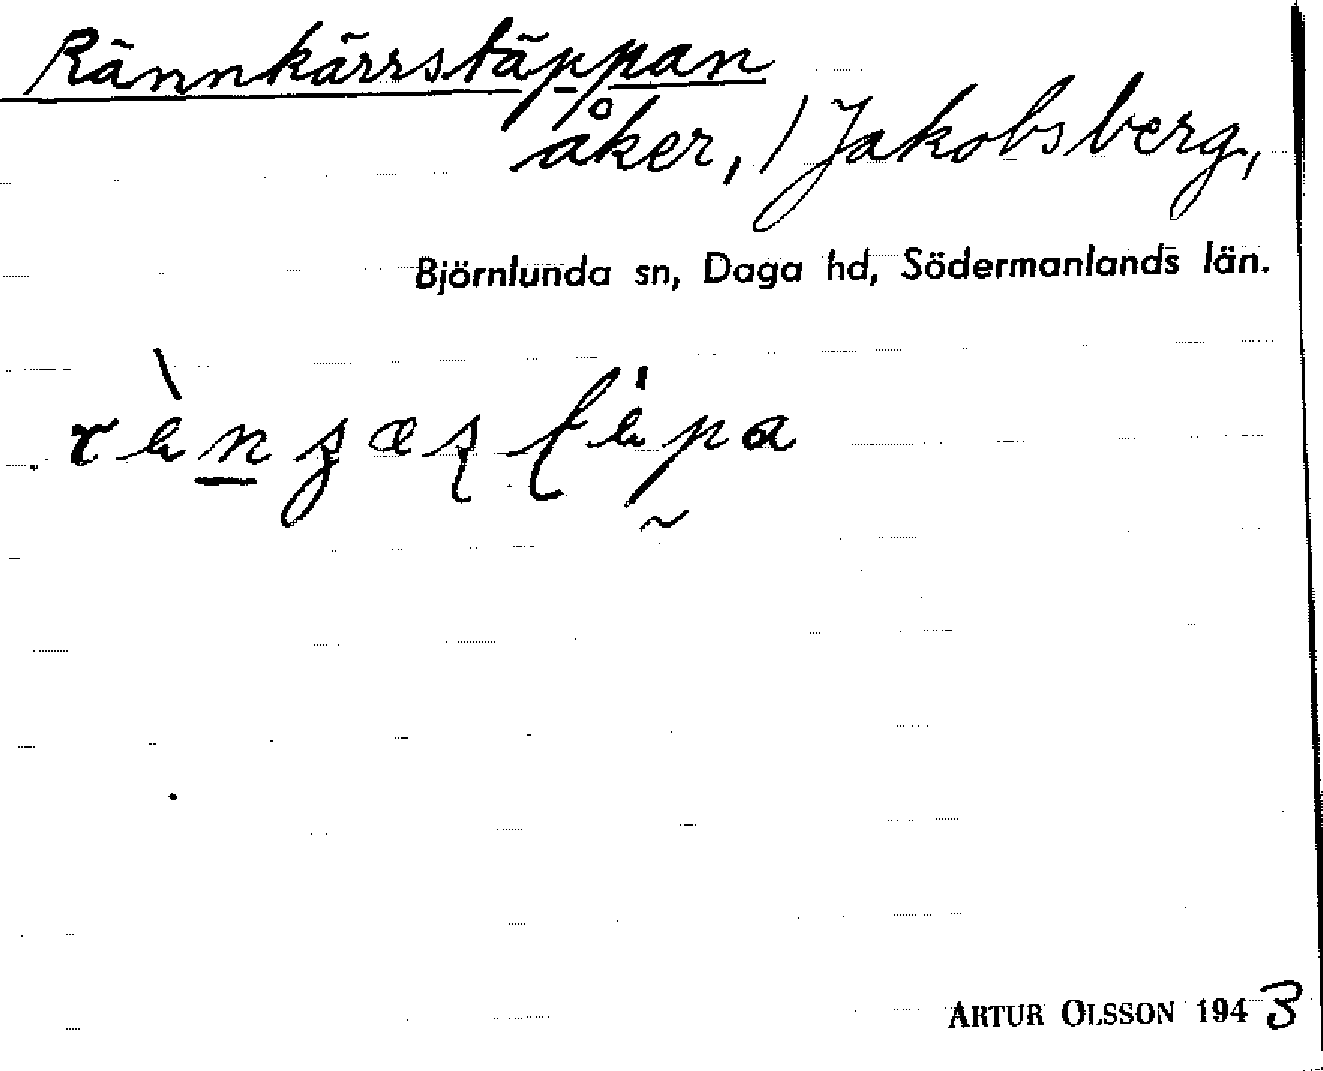 Rännkärrstäppan
åker, / Jakobsberg,
Björnlunda sn, Daga hd, Södermanlands län.
ARTUR OLSSON 1943